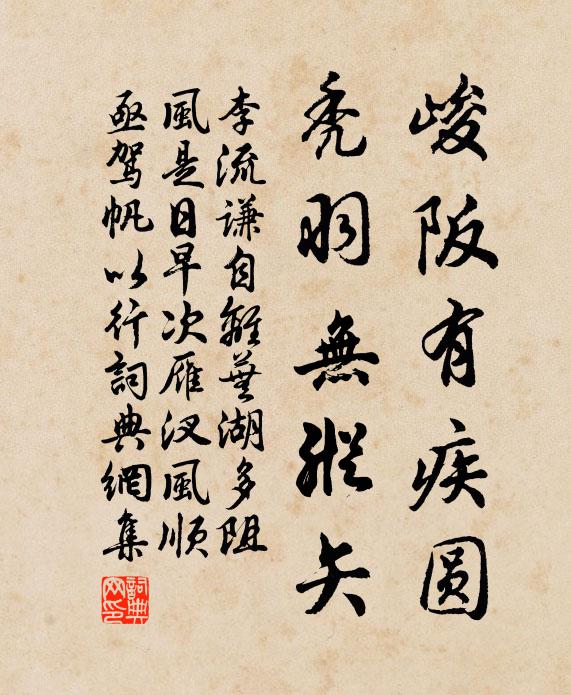 峻阪有疾圓
禿羽無縱矢
李流謙自離蕪湖多阻
風是日早次雁汊風順
亟駕帆以行詞典網集
詞典網印